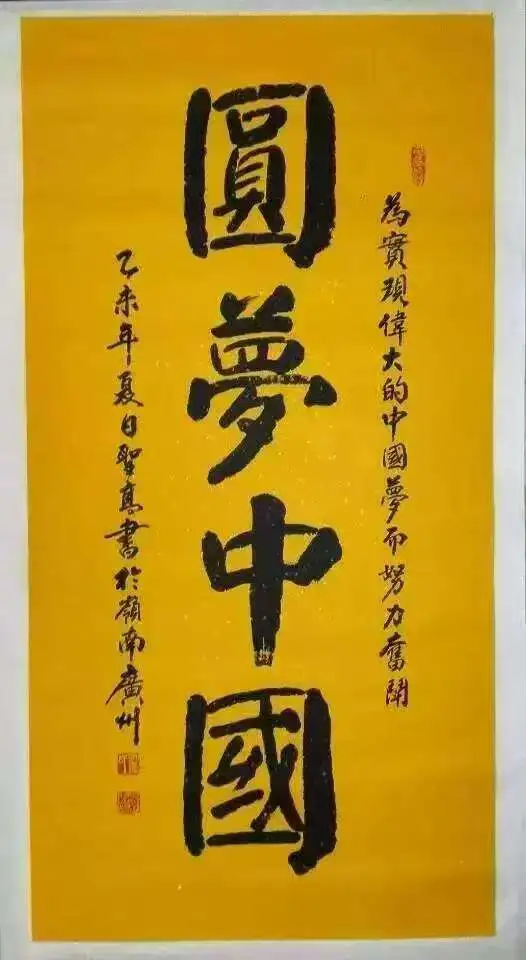 為實現偉大的中國夢而努力奮鬪
圓夢中國
乙未年夏日聖亮書於嶺南廣州